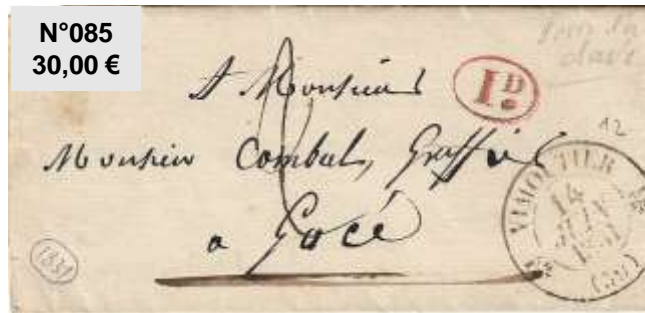 N°085
30,00 €
A Monsieur
1D
Monsieur Combal, Greffier
12
a Gacé
VIMOUTIER
14
JUIN
1831
(59)
(1831)